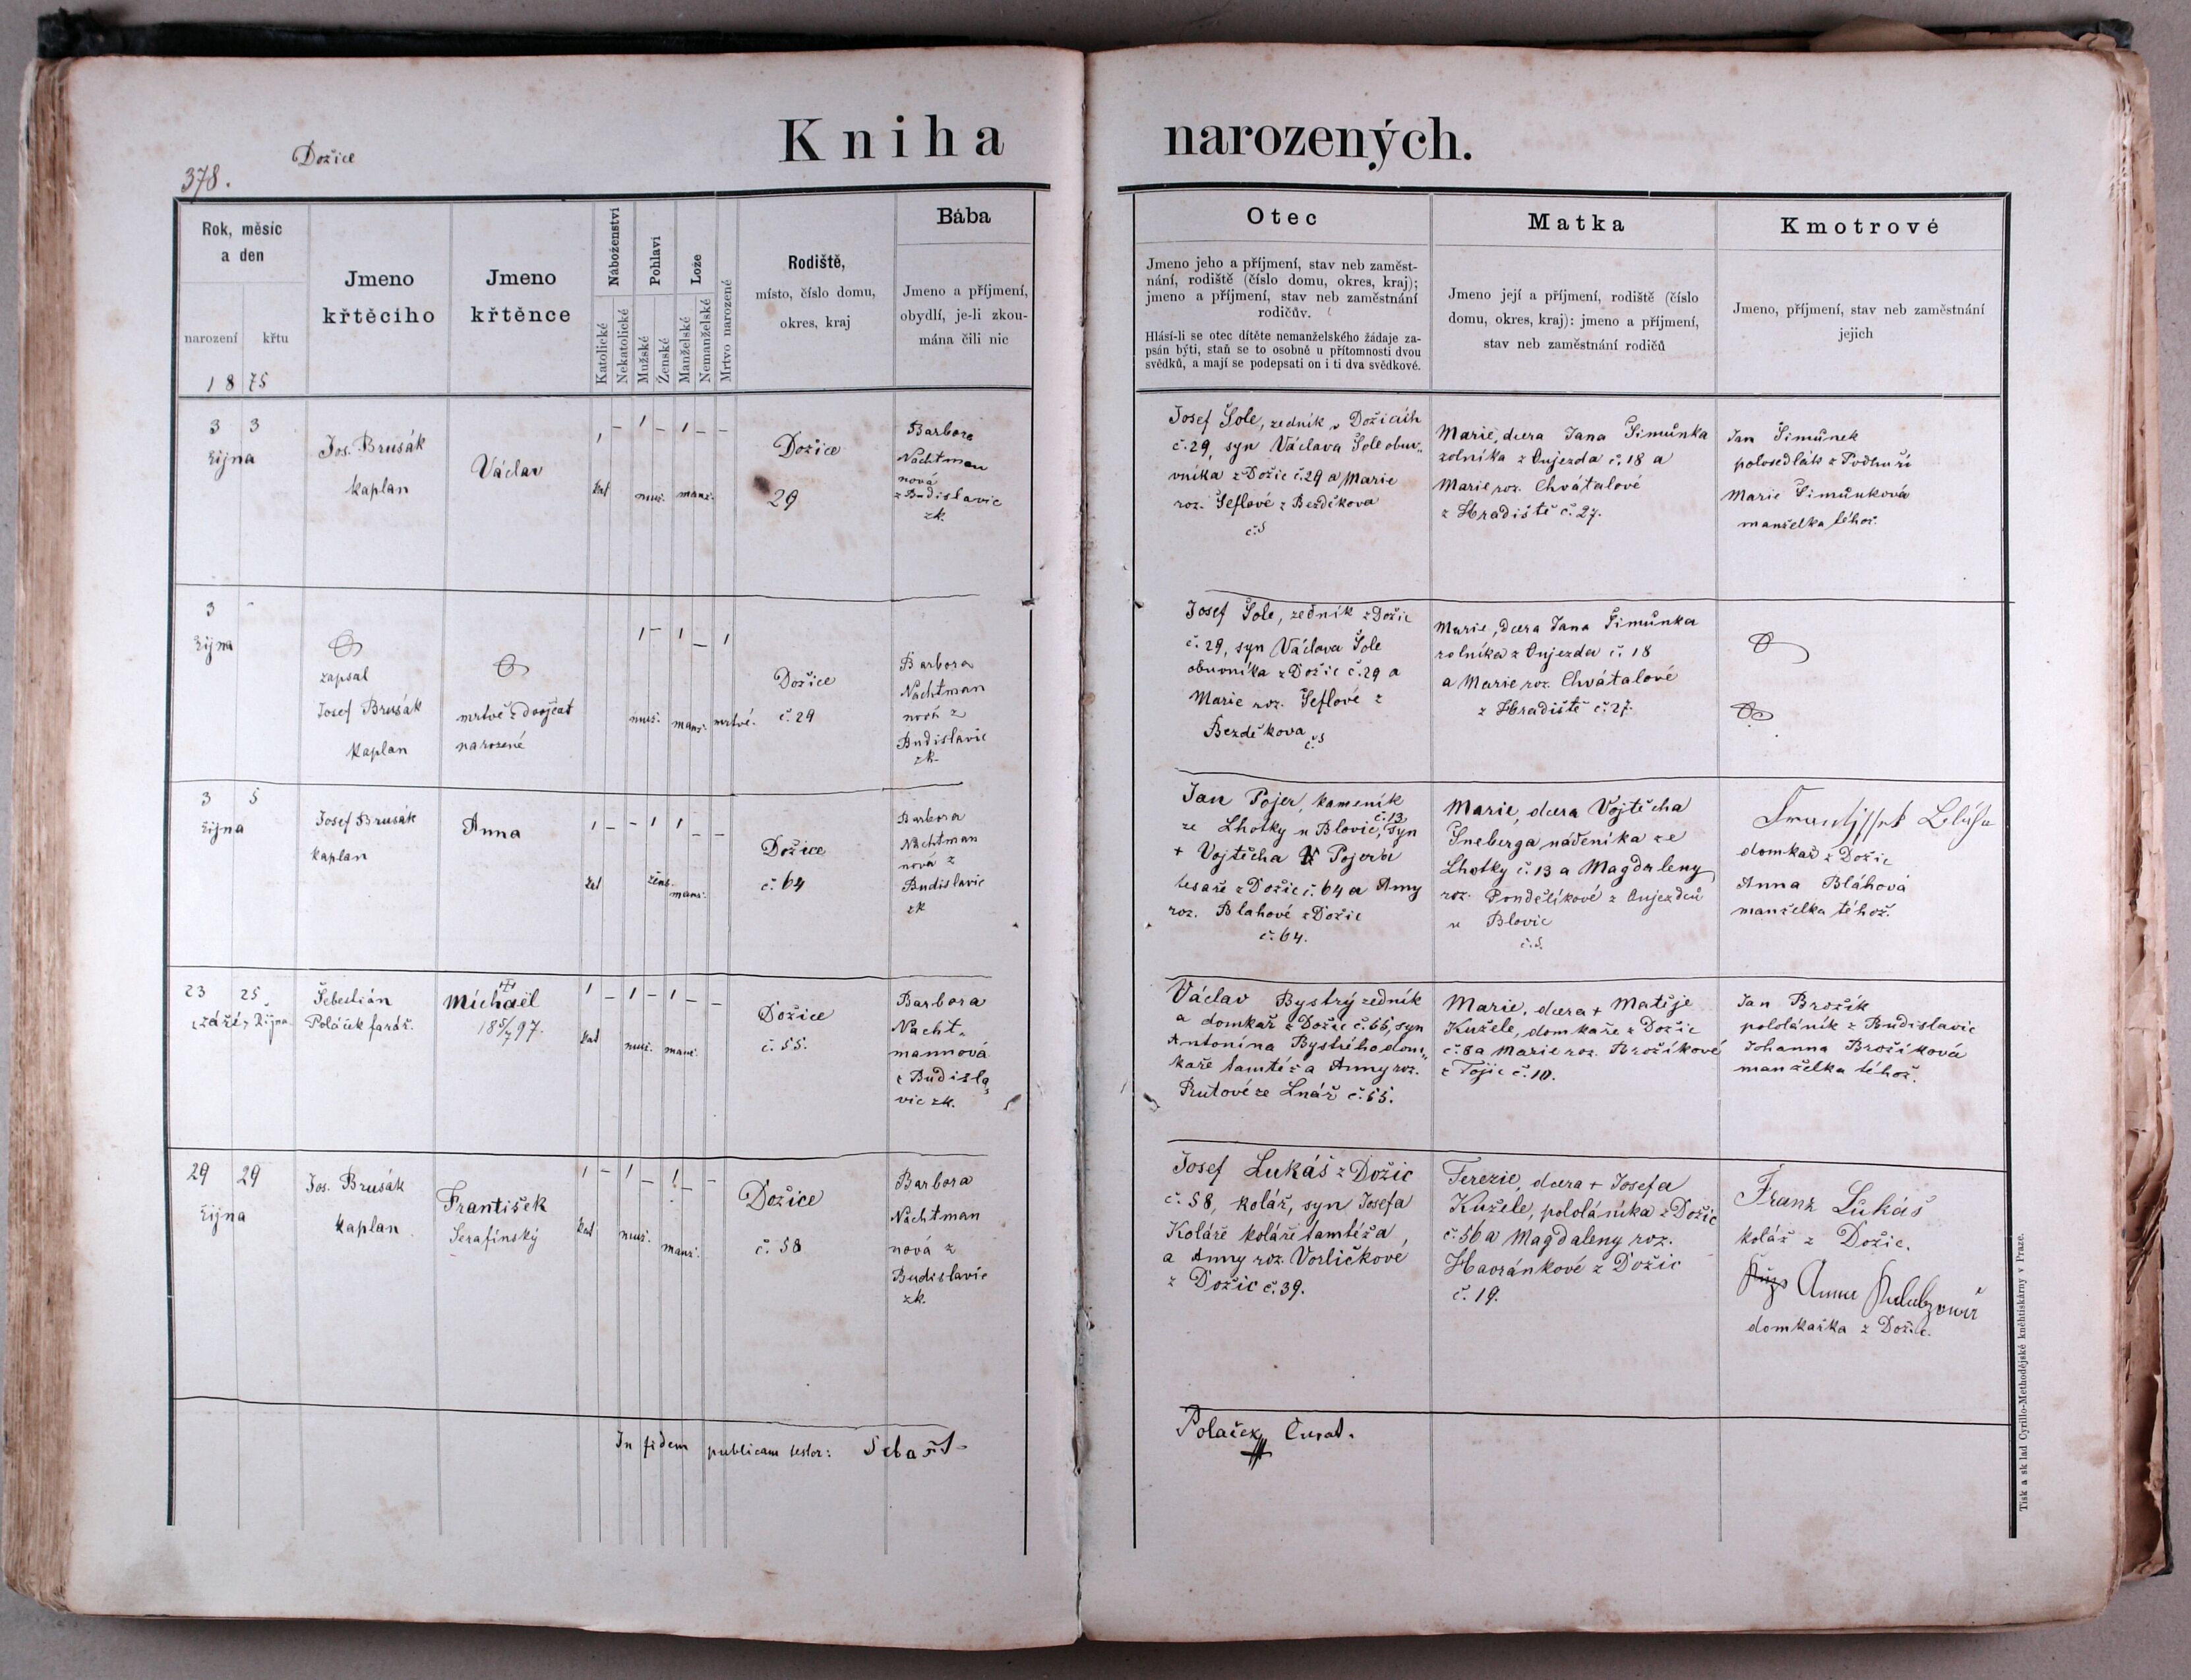 Kniha narozených.
Dožice
378.
Rok, měsíc
a den
narození
křtu
1875
Jmeno
křtěcího
Jmeno
křtěnce
Náboženství
Katolické
Nekatolické
Pohlaví
Mužské
Ženské
Lože
Manželské
Nemanželské
Mrtvo narozené
Rodiště,
místo, číslo domu,
okres, kraj
Bába
Jmeno a příjmení,
obydlí, je-li zkou-
mána čili nic
Otec
Jmeno jeho a příjmení, stav neb zaměst-
nání, rodiště (číslo domu, okres, kraj);
jmeno a příjmení, stav neb zaměstnání
rodičův.
Hlásí-li se otec dítěte nemanželského žádaje za-
psán býti, staň se to osobně u přítomnosti dvou
svědků, a mají se podepsati on i ti dva svědkové.
Matka
Jmeno její a příjmení, rodiště (číslo
domu, okres, kraj): jmeno a příjmení,
stav neb zaměstnání rodičů
Kmotrové
Jmeno, příjmení, stav neb zaměstnání
jejich
3 3
října
Jos. Brusák
kaplan
Václav
1 – 1 – 1 – –
kat muž. manž.
Dožice
29
Barbora
Nachtman
nová
z Budislavic
zk.
Josef Šole, zedník v Dožicích
č. 29, syn Václava Šole obuv„
vníka z Dožic č. 29 a Marie
roz. Šeflové z Bezděkova
č. 5
Marie, dcera Jana Šimůnka
rolníka z Oujezda č. 18 a
Marie roz. Chvátalové
z Hradiště č. 27.
Jan Šimůnek
polosedlák z Podhuří
Marie Šimůnková
manželka téhož.
3 –
října
zapsal
Josef Brusák
kaplan
mrtvě z dvojčat
narozené
1 – 1 – 1
muž. manž. mrtvé.
Dožice
č. 29
Barbora
Nachtman
nová z
Budislavic
zk.
Josef Šole, zedník z Dožic
č. 29, syn Václava Šole
obuvníka z Dožic č. 29 a
Marie roz. Šeflové z
Bezděkova
č. 5
Marie, dcera Jana Šimůnka
rolníka z Oujezda č. 18
a Marie roz. Chvátalové
z Hradiště č. 27.
3 5
října
Josef Brusák
kaplan
Anna
1 – – 1 1 – –
kat žens. manž.
Dožice
č. 64
Barbora
Nachtman
nová z
Budislavic
zk
Jan Pojer, kameník
ze Lhotky u Blovic, č. 13 syn
+ Vojtěcha Pojera
tesaře z Dožic č. 64 a Anny
roz. Blahové z Dožic
č. 64.
Marie, dcera Vojtěcha
Šneberga nádeníka ze
Lhotky č. 13 a Magdaleny
roz. Pondělíkové z Oujezdců
u Blovic
č. 5.
domkář z Dožic
Anna Bláhová
manželka téhož.
23 25
září, října
Šebestián
Poláček farář.
Michaël
18 5/7 97.
1 – 1 – 1 – –
kat muž. manž.
Dožice
č. 55.
Barbora
Nacht„
mannová
z Budisla„
vic zk.
Václav Bystrý zedník
a domkář z Dožic č. 55, syn
Antonína Bystrého dom„
káře tamtéž a Anny roz.
Rutové ze Lnář č. 55.
Marie, dcera + Matěje
Kužele, domkáře z Dožic
č. 8 a Marie roz. Brožíkové
z Tojic č. 10.
Jan Brožík
pololáník z Budislavic
Johanna Brožíková
manželka téhož.
29 29
října
Jos. Brusák
kaplan
František
Serafínský
1 – 1 – 1 – –
kat muž. manž.
Dožice
č. 58
Barbora
Nachtman
nová z
Budislavic
zk.
Josef Lukáš z Dožic
č. 58, kolář, syn Josefa
Koláře koláře tamtéž a
a Anny roz. Vorličkové
z Dožic č. 39.
Terezie, dcera + Josefa
Kužele, pololáníka z Dožic
č. 56 a Magdaleny roz.
Havránkové z Dožic
č. 19.
Franz Lukáš
kolář z Dožic.
Anna
domkářka z Dožic.
In fidem publicam testor: Sebast. Polaček Curat.
Tisk a sklad Cyrillo-Methodějské kněhtiskárny v Praze.